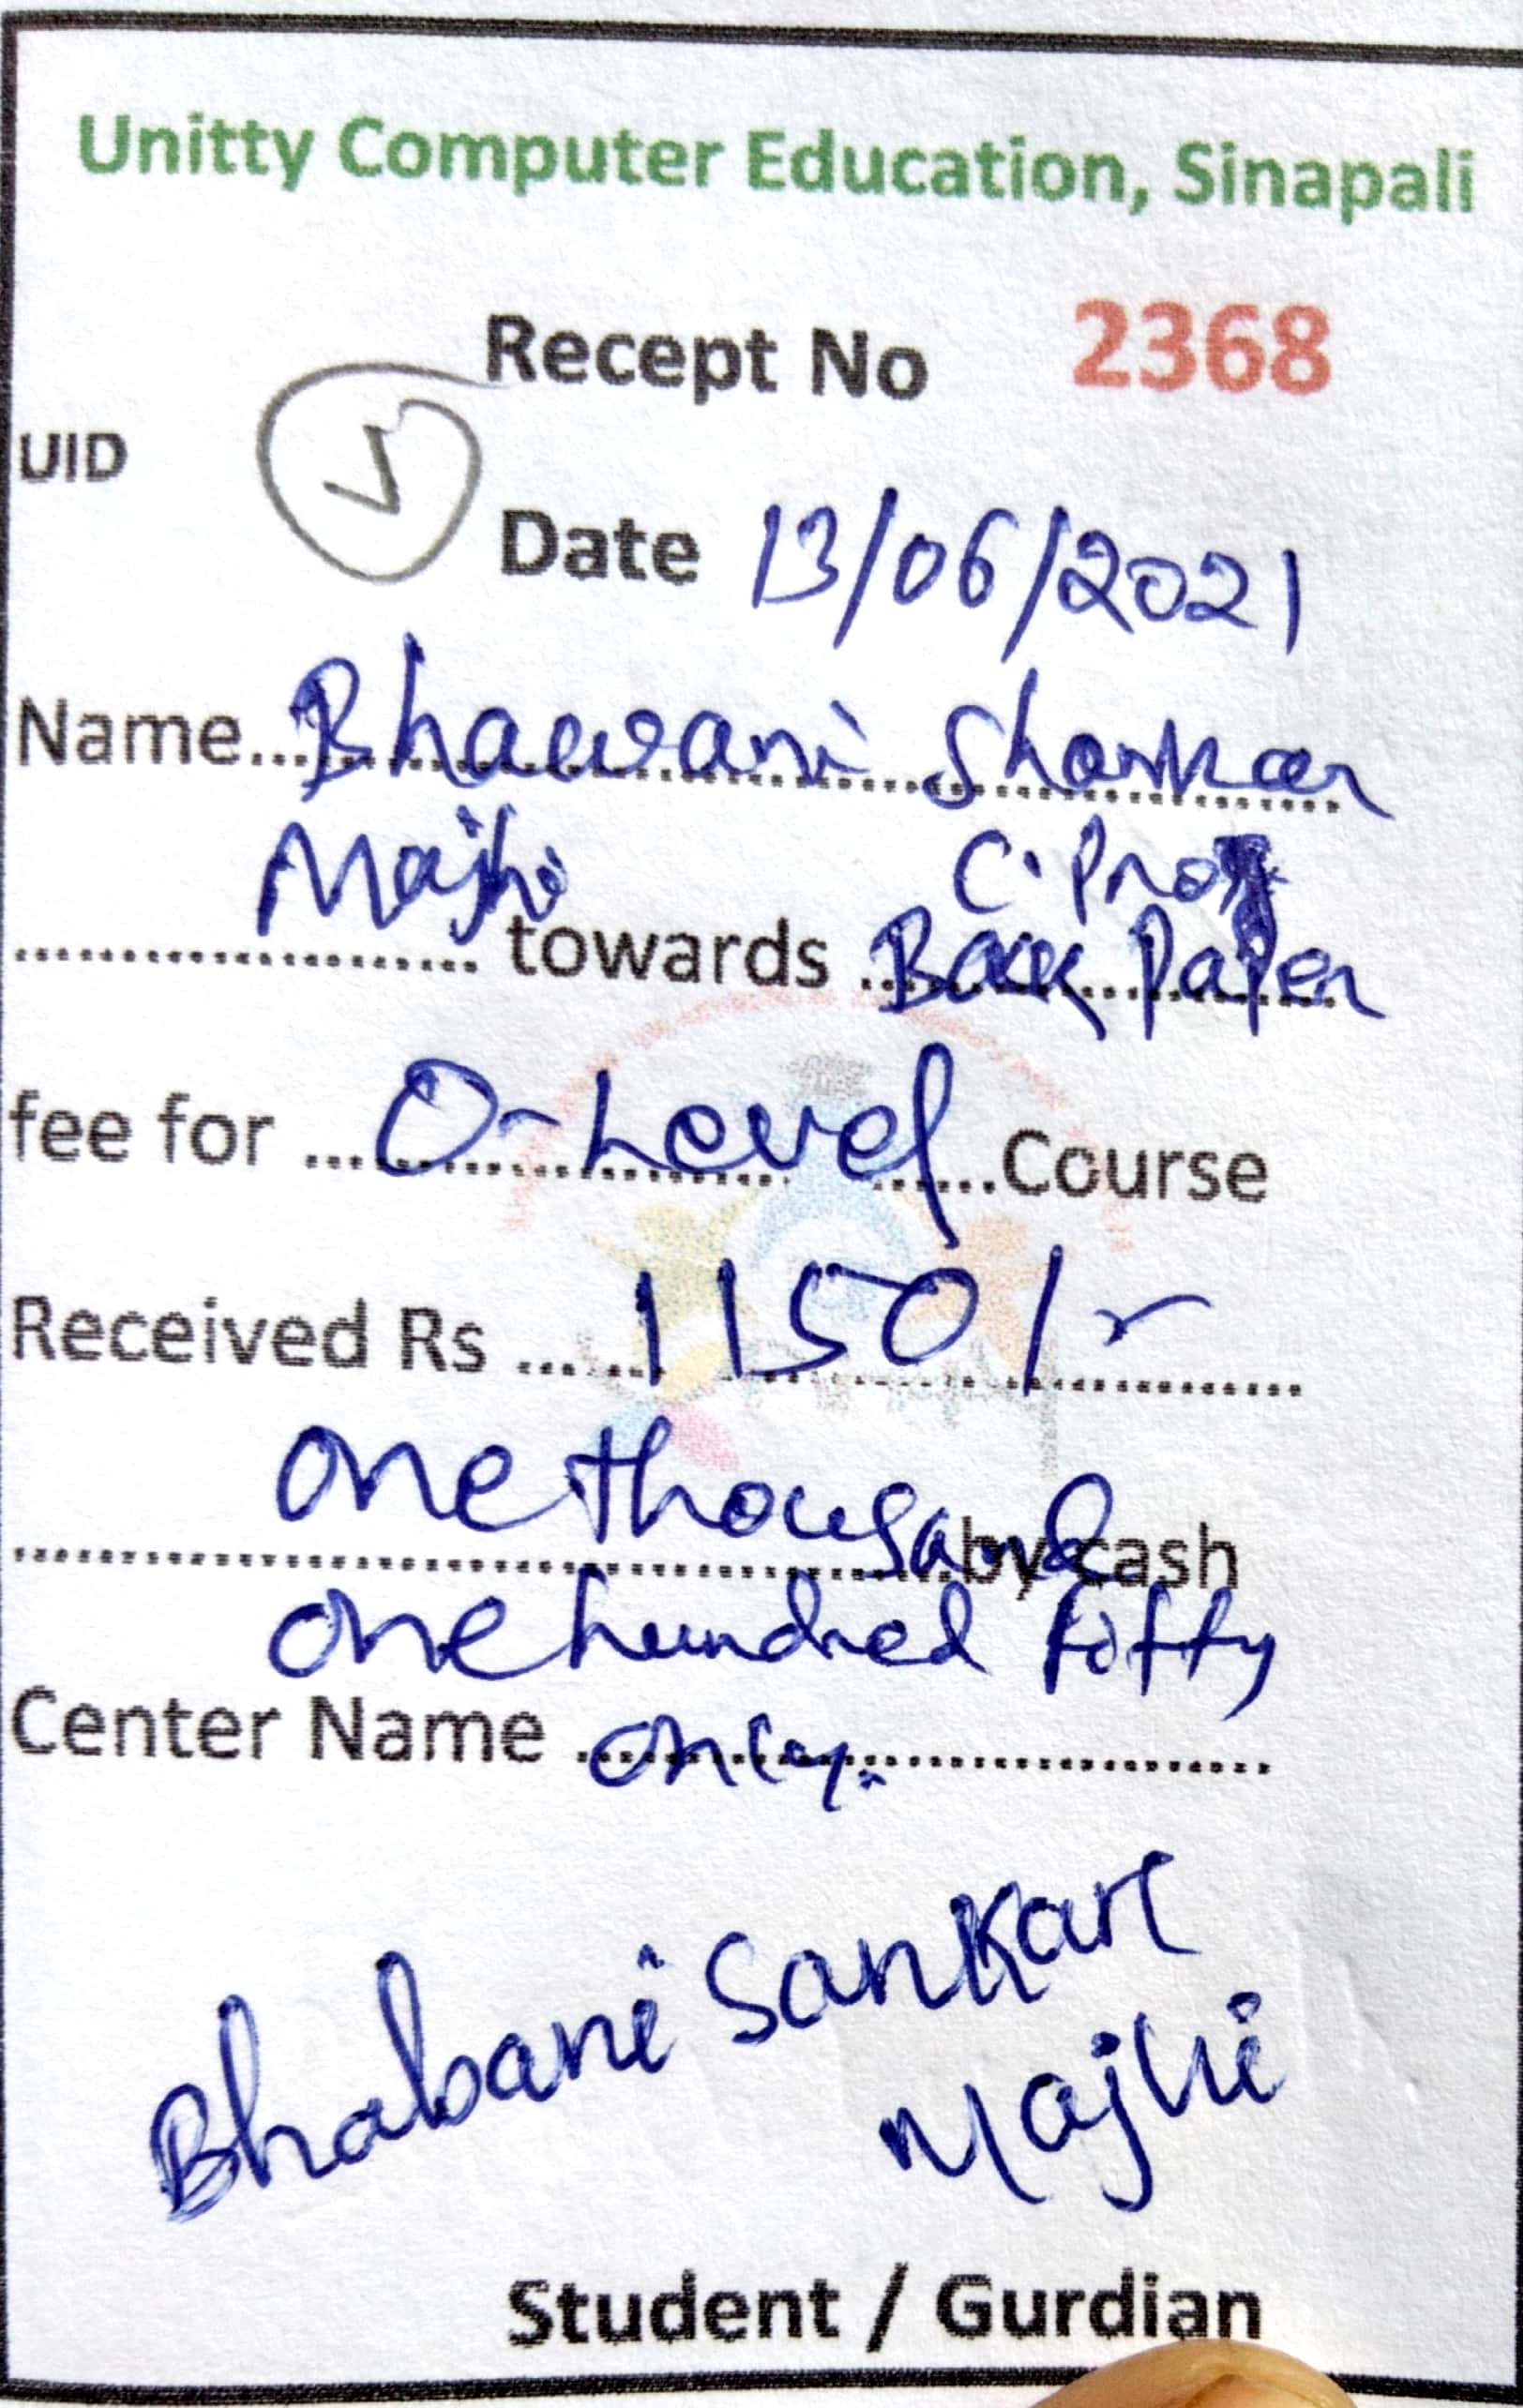 Unitty Computer Education, Sinapali
Recept No 2368
UID
Date 13/06/2021
Name... Bhawani Shankar
Majhi C. Prog
.................... towards Back Paper
fee for ... O-Level ......Course
Received Rs ...... 1150/-
one thousand
....................by cash
one hundred fifty
Center Name ... only.
Bhabani Sankar
Majhi
Student / Gurdian